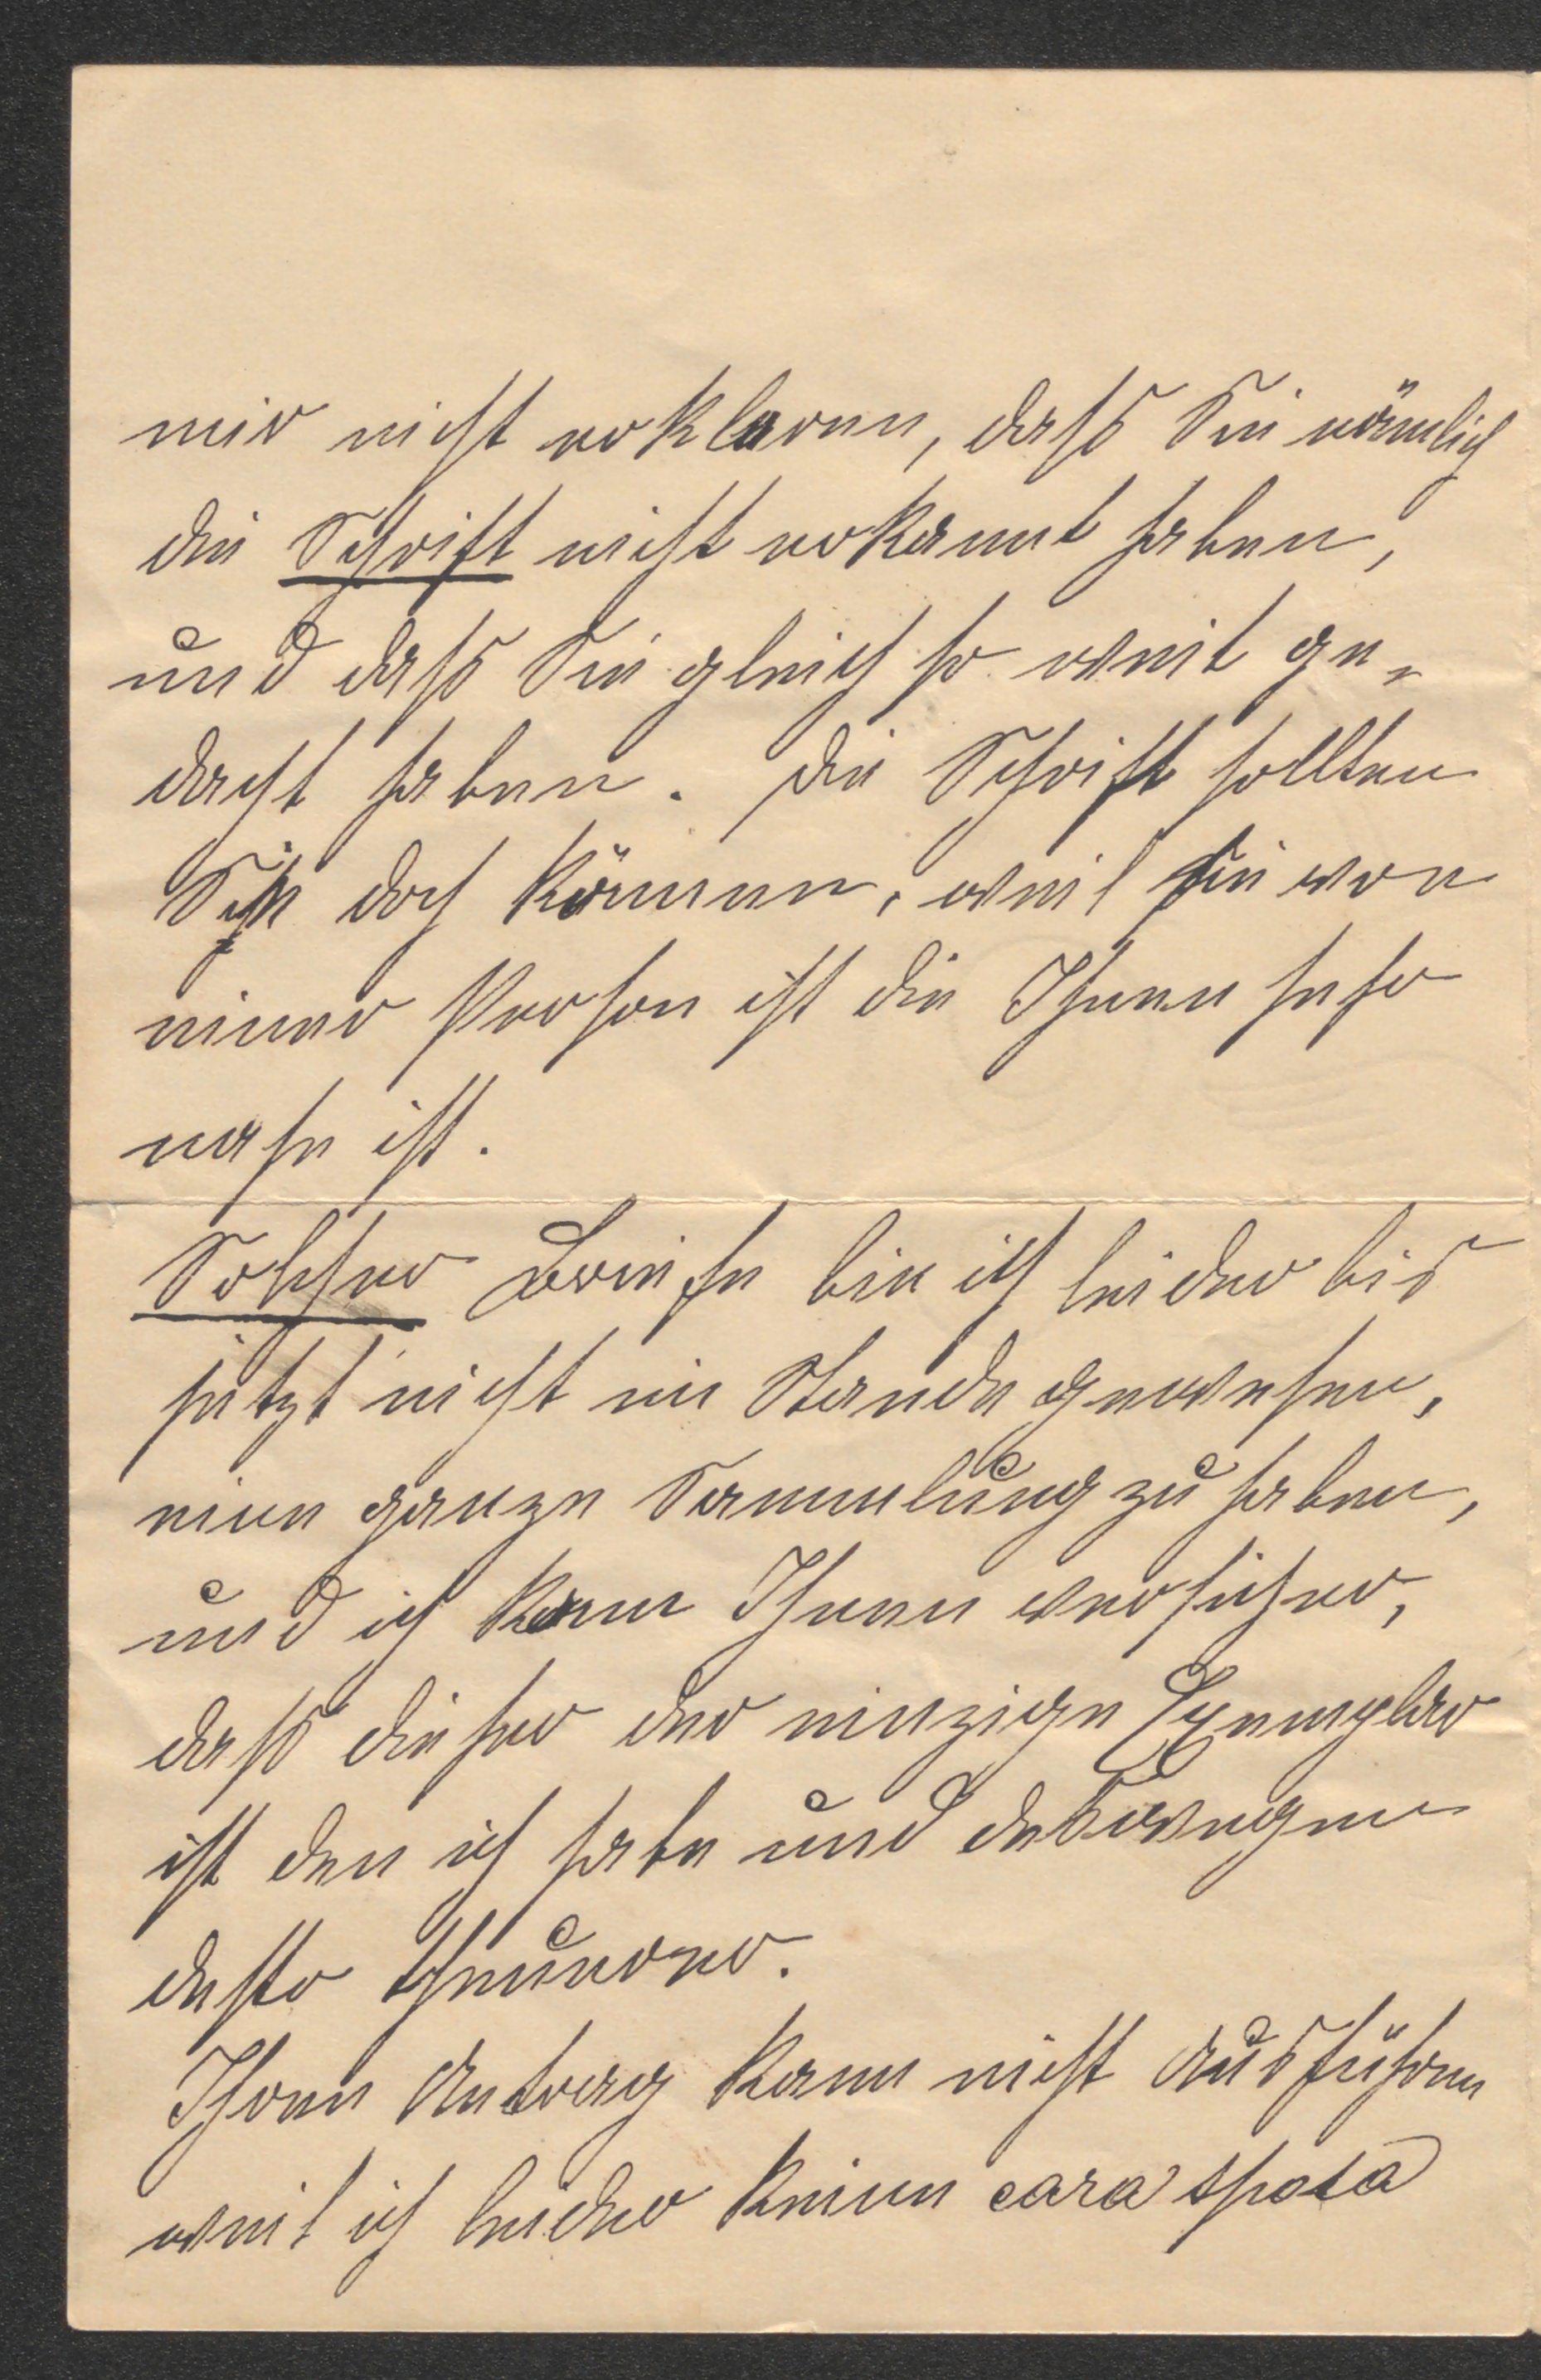 mir nicht erklaren, dass Sie nämlich
die Schrift nicht erkannt haben,
und dass Sie gleich so weit ge„
dacht haben. Die Schrift sollten
Sie doch können, weil sie von
einer Person ist die Ihnen sehr
nahe ist.
Solcher Briefe bin ich leider bis
jetzt nicht im Stande gewesen,
eine ganze Sammlung zu haben,
und ich kann Ihnen versicher,
dass dieser der einzige Exemplar
ist den ich habe und deswegen
desto theuerer.
Ihren Antrag kann nicht ausführen
weil ich leider keine cara sposa